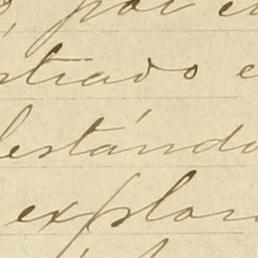 por e
stiado e
lestándo
explor